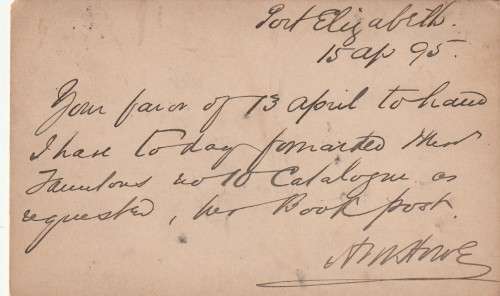 Port Elizabeth.
15 ap 95.
Your favor of 13 april to hand
I have to day forwarded
no 10 Catalogue as
requested, per Book post.